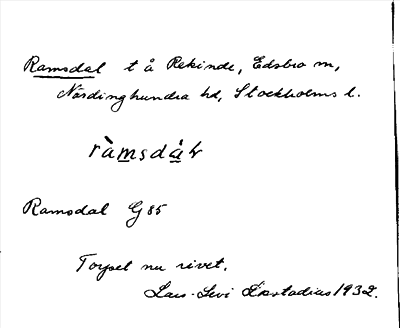 Ramsdal t å Rekinde, Edsbro sn,
Närdinghundra hd, Stockholms l.
ràmsdál
Ramsdal G 85
Torpet nu rivet.
Lars-Levi Læstadius 1932.